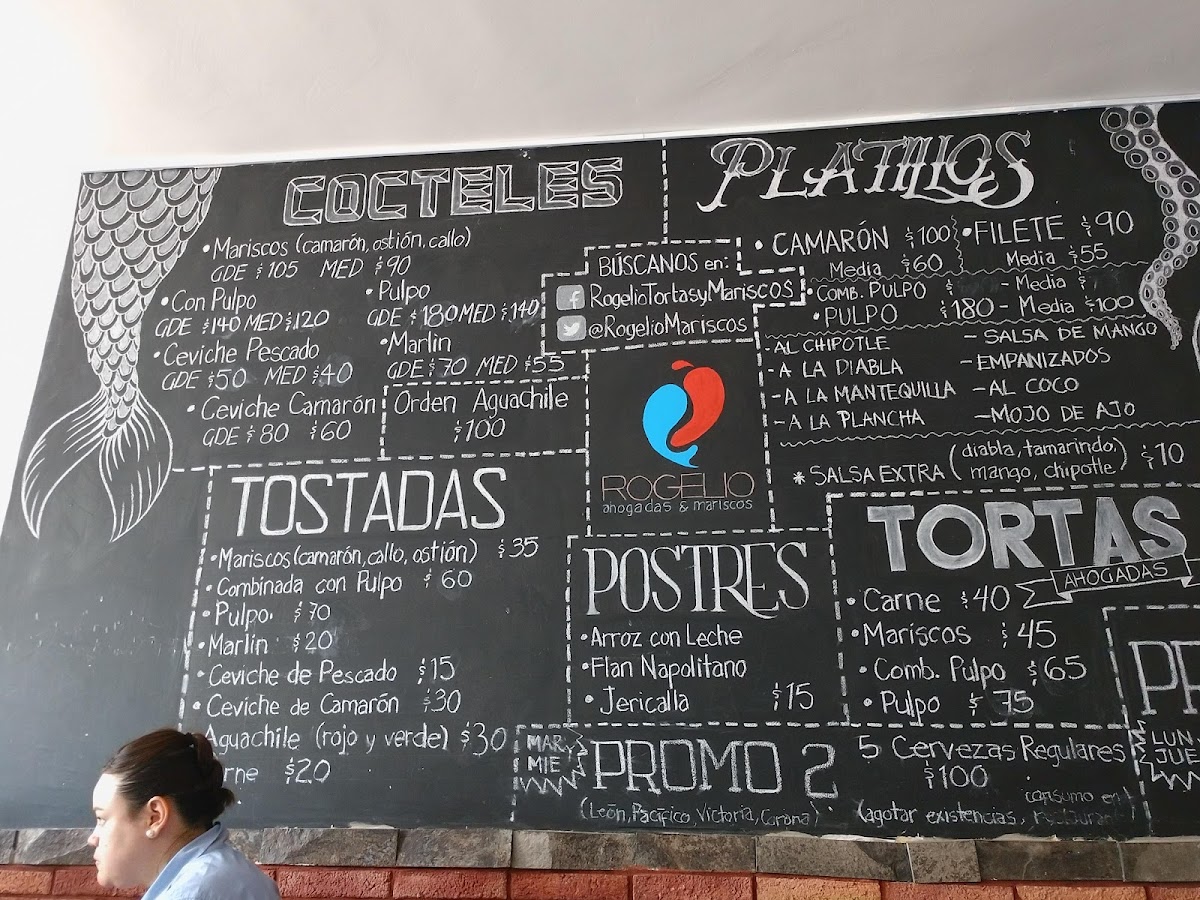 COCTELES
• Mariscos (camarón, ostión, callo)
GDE $105 MED $90
• Con Pulpo
GDE $140 MED $120
• Ceviche Pescado
GDE $50 MED $40
• Ceviche Camarón
GDE $80 $60
• Pulpo
GDE $180 MED $140
• Marlin
GDE $70 MED $55
Orden Aguachile
$100
BÚSCANOS en:
f RogelioTortasyMariscos
@RogelioMariscos
ROGELIO
ahogadas & mariscos
PLATILLOS
• CAMARÓN $100
Media $60
• FILETE $90
Media $55
• COMB. PULPO $ - Media $
• PULPO $180 - Media $100
- AL CHIPOTLE
- A LA DIABLA
- A LA MANTEQUILLA
- A LA PLANCHA
- SALSA DE MANGO
- EMPANIZADOS
- AL COCO
- MOJO DE AJO
* SALSA EXTRA (diabla, tamarindo, mango, chipotle) $10
TOSTADAS
• Mariscos (camarón, callo, ostión) $35
• Combinada con Pulpo $60
• Pulpo $70
• Marlin $20
• Ceviche de Pescado $15
• Ceviche de Camarón $30
Aguachile (rojo y verde) $30
rne $20
POSTRES
• Arroz con Leche
• Flan Napolitano
• Jericalla $15
TORTAS
AHOGADAS
• Carne $40
• Mariscos $45
• Comb. Pulpo $65
• Pulpo $75
MAR y
MIE
PROMO 2
(León, Pacífico, Victoria, Corona)
5 Cervezas Regulares
$100
(agotar existencias, consumo en restaurant)
PR
LUN
JUE